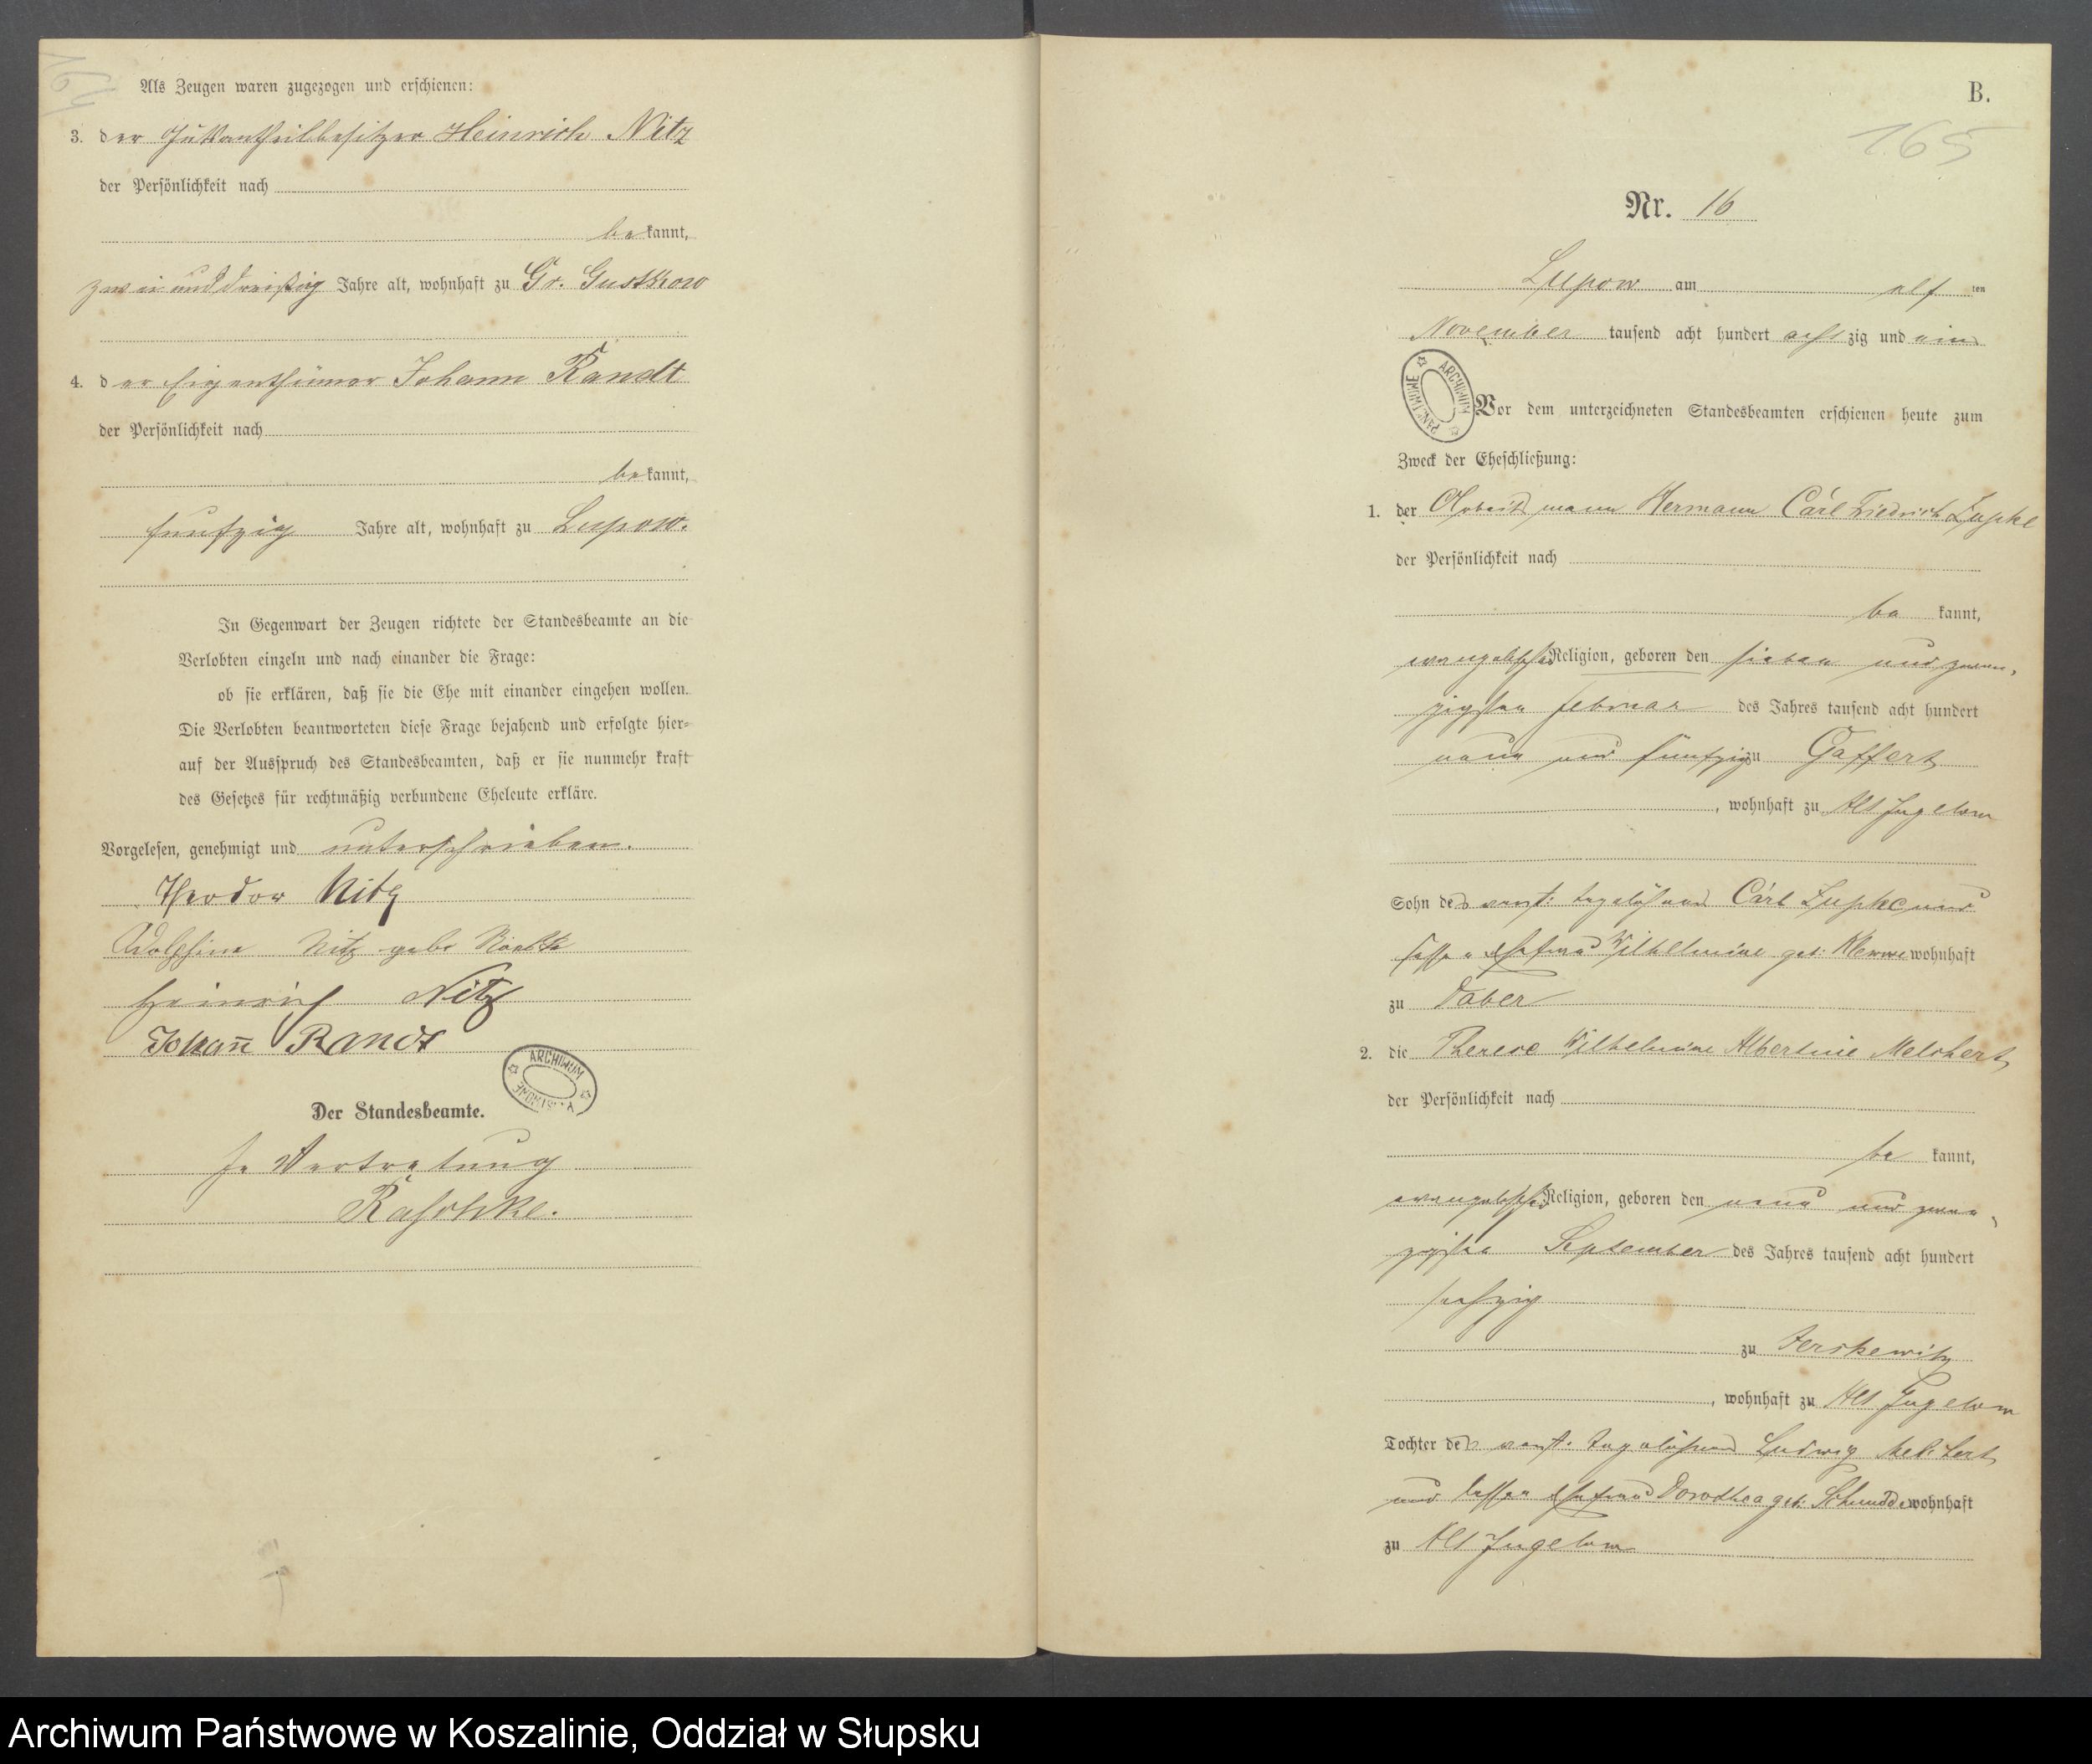 164
Als Zeugen waren zugezogen und erschienen:
3. der Gutsantheilbesitzer Heinrich Nitz
der Persönlichkeit nach
be kannt,
zwei und dreißig Jahre alt, wohnhaft zu Gr. Gustkow
4. der Eigenthümer Johann Randt
der Persönlichkeit nach
be kannt,
funfzig Jahre alt, wohnhaft zu Lupow.
In Gegenwart der Zeugen richtete der Standesbeamte an die
Verlobten einzeln und nach einander die Frage:
ob sie erklären, daß sie die Ehe mit einander eingehen wollen.
Die Verlobten beantworteten diese Frage bejahend und erfolgte hier-
auf der Ausspruch des Standesbeamten, daß er sie nunmehr kraft
des Gesetzes für rechtmäßig verbundene Eheleute erkläre.
Vorgelesen, genehmigt und unterschrieben.
Theodor Nitz
Nitz geb.
Heinrich Nitz
Johann Randt
ARCHIWUM
Der Standesbeamte.
In Vertretung
Raschke.
B.
165
Nr. 16
Lupow am elf ten
November tausend acht hundert acht zig und ein
ARCHIWUM PAŃSTWOWE
Vor dem unterzeichneten Standesbeamten erschienen heute zum
Zweck der Eheschließung:
1. der Arbeitsmann Hermann Carl Friedrich Zupke
der Persönlichkeit nach
be kannt,
evangelischer Religion, geboren den sieben und zwan-
zigsten Februar des Jahres tausend acht hundert
neun und funfzig zu Gaffert
, wohnhaft zu Alt Jugelow
Sohn des verst: Tagelöhners Carl Zupke und
dessen Ehefrau Wilhelmine geb: wohnhaft
zu Daber
2. die Therese Wilhelmine Albertine Melchert
der Persönlichkeit nach
be kannt,
evangelischer Religion, geboren den neun und zwan-
zigsten September des Jahres tausend acht hundert
sechzig
zu Jerskewitz
, wohnhaft zu Alt Jugelow
Tochter des verst: Tagelöhners Ludwig Melchert
und dessen Ehefrau Dorothea geb: Schmudde wohnhaft
zu Alt Jugelow
Archiwum Państwowe w Koszalinie, Oddział w Słupsku